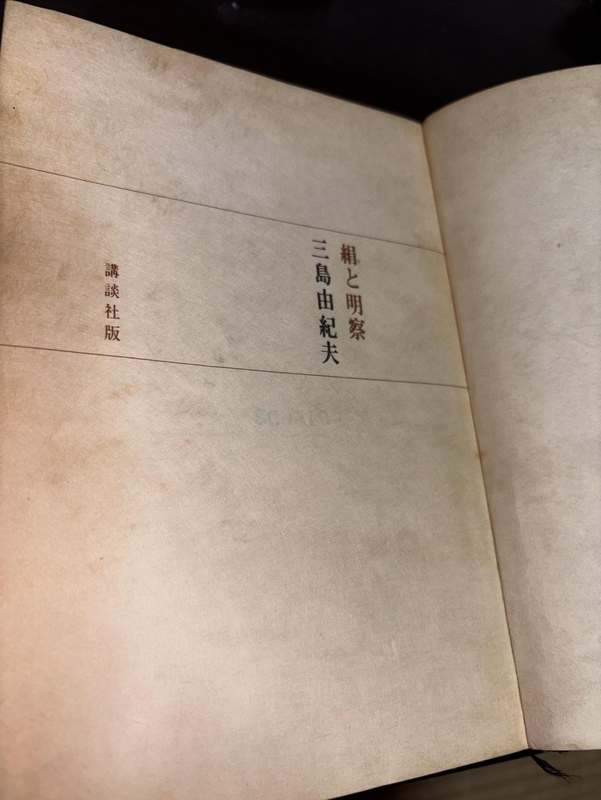 絹と明察
三島由紀夫
講談社版